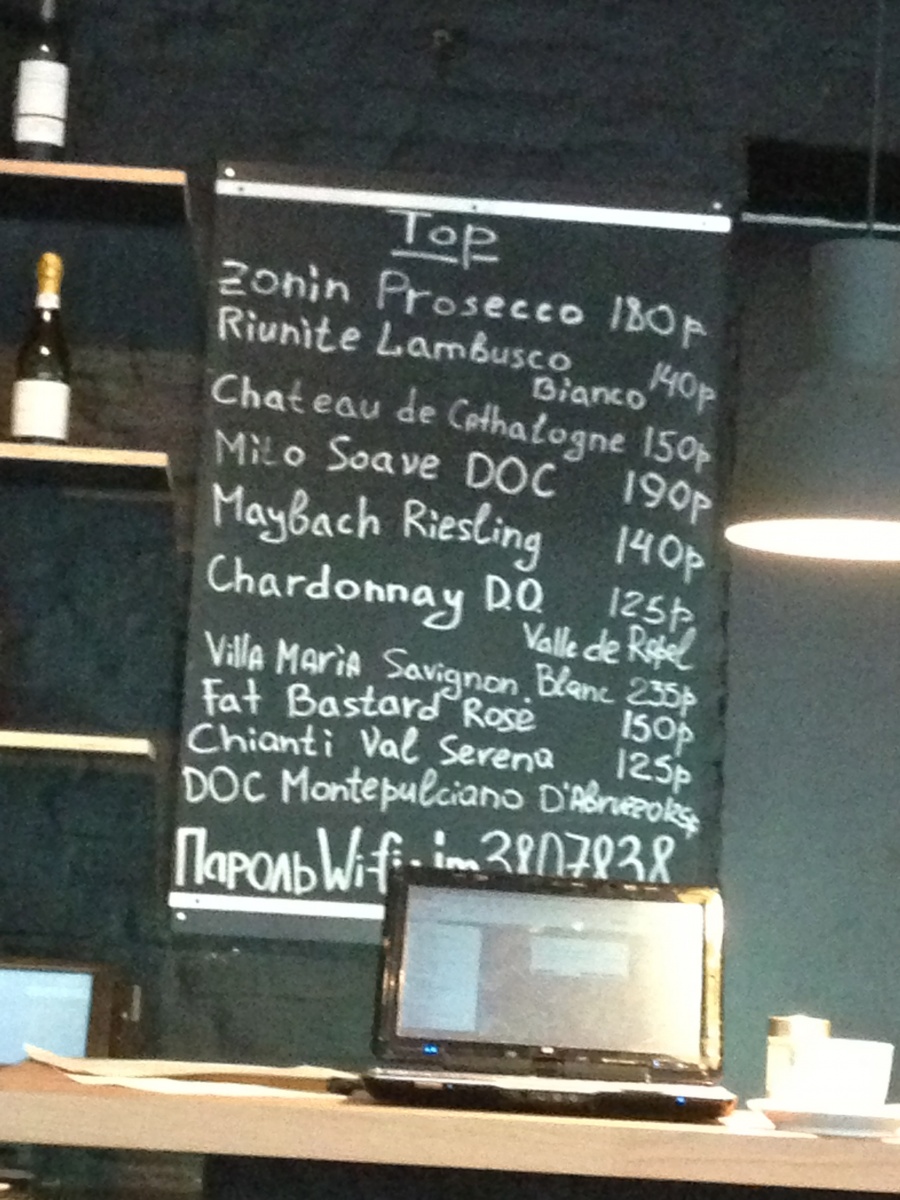 Top
Zonin Prosecco 180р
Riunite Lambusco
Bianco 140р
Chateau de Cathalogne 150р
Mito Soave DOC 190р
Maybach Riesling 140р
Chardonnay D.O. 125р
Valle de Rapel
Villa Maria Savignon Blanc 235р
Fat Bastard Rosé 150р
Chianti Val Serena 125р
DOC Montepulciano D'Abruzzo
Пароль Wifi: im3807838